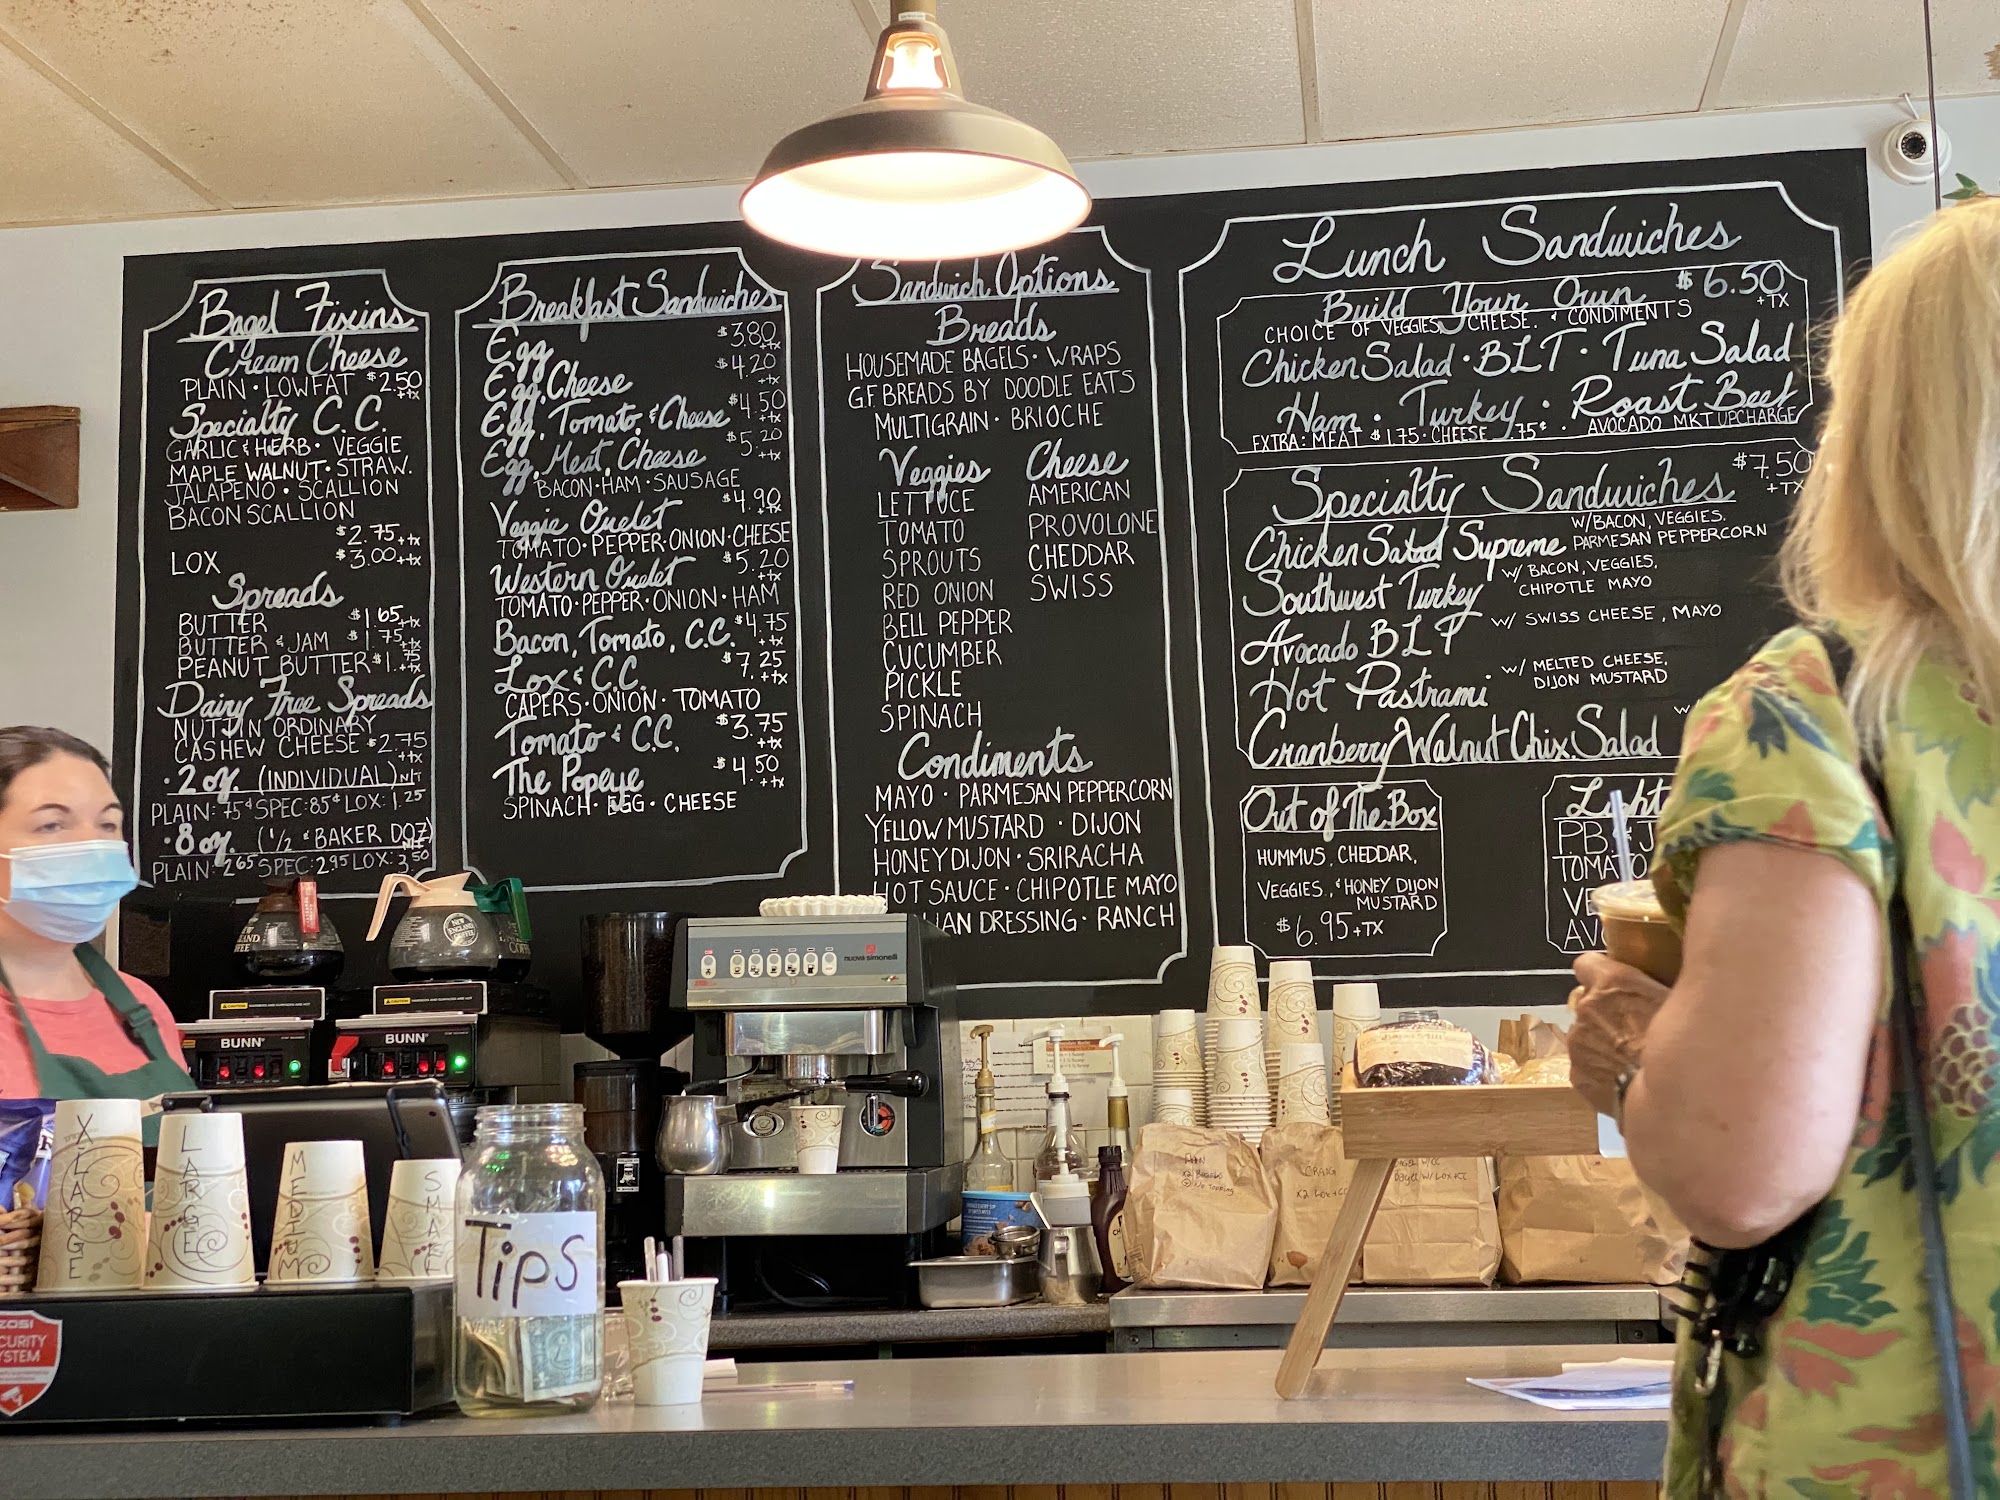 Bagel Fixins
Cream Cheese
PLAIN · LOWFAT $2.50 +tx
Specialty C.C.
GARLIC & HERB · VEGGIE
MAPLE WALNUT · STRAW.
JALAPENO · SCALLION
BACON SCALLION
$2.75 +tx
LOX $3.00 +tx
Spreads
BUTTER $1.65 +tx
BUTTER & JAM $1.75 +tx
PEANUT BUTTER $1.75 +tx
Dairy Free Spreads
NUTTIN ORDINARY
CASHEW CHEESE $2.75 +tx
· 2 oz. (INDIVIDUAL)
PLAIN: 75¢ SPEC: 85¢ LOX: 1.25
· 8 oz. (1/2 & BAKER DOZ)
PLAIN: 2.65 SPEC: 2.95 LOX: 3.50
Breakfast Sandwiches
Egg $3.80 +tx
Egg, Cheese $4.20 +tx
Egg, Tomato, & Cheese $4.50 +tx
Egg, Meat, Cheese $5.20 +tx
BACON · HAM · SAUSAGE
Veggie Omelet $4.90 +tx
TOMATO · PEPPER · ONION · CHEESE
Western Omelet $5.20 +tx
TOMATO · PEPPER · ONION · HAM
Bacon, Tomato, C.C. $4.75 +tx
Lox & C.C. $7.25 +tx
CAPERS · ONION · TOMATO
Tomato & C.C. $3.75 +tx
The Popeye $4.50 +tx
SPINACH · EGG · CHEESE
Sandwich Options
Breads
HOUSEMADE BAGELS · WRAPS
G.F BREADS BY DOODLE EATS
MULTIGRAIN · BRIOCHE
Veggies
LETTUCE
TOMATO
SPROUTS
RED ONION
BELL PEPPER
CUCUMBER
PICKLE
SPINACH
Cheese
AMERICAN
PROVOLONE
CHEDDAR
SWISS
Condiments
MAYO · PARMESAN PEPPERCORN
YELLOW MUSTARD · DIJON
HONEY DIJON · SRIRACHA
HOT SAUCE · CHIPOTLE MAYO
DRESSING · RANCH
Lunch Sandwiches
Build Your Own $6.50 +TX
CHOICE OF VEGGIES, CHEESE. & CONDIMENTS
Chicken Salad · BLT · Tuna Salad
Ham · Turkey · Roast Beef
EXTRA: MEAT $1.75 · CHEESE .75¢ · AVOCADO MKT UPCHARGE
Specialty Sandwiches $7.50 +TX
Chicken Salad Supreme W/BACON, VEGGIES.
PARMESAN PEPPERCORN
Southwest Turkey W/ BACON, VEGGIES,
CHIPOTLE MAYO
Avocado BLT W/ SWISS CHEESE, MAYO
Hot Pastrami W/ MELTED CHEESE,
DIJON MUSTARD
Cranberry Walnut Chix. Salad
Out of The Box
HUMMUS, CHEDDAR,
VEGGIES., & HONEY DIJON
MUSTARD
$6.95 +TX
Light
P.B. & J
TOMATO
VE
AV
NEW ENGLAND COFFEE
nuova simonelli
BUNN
BUNN
X LARGE
LARGE
MEDIUM
SMALL
Tips
ZOSI
SECURITY
SYSTEM
X2 Bagels
CRAIG
X2 LOX + CC
Bagel W/ CC
Bagel W/ LOX + CC